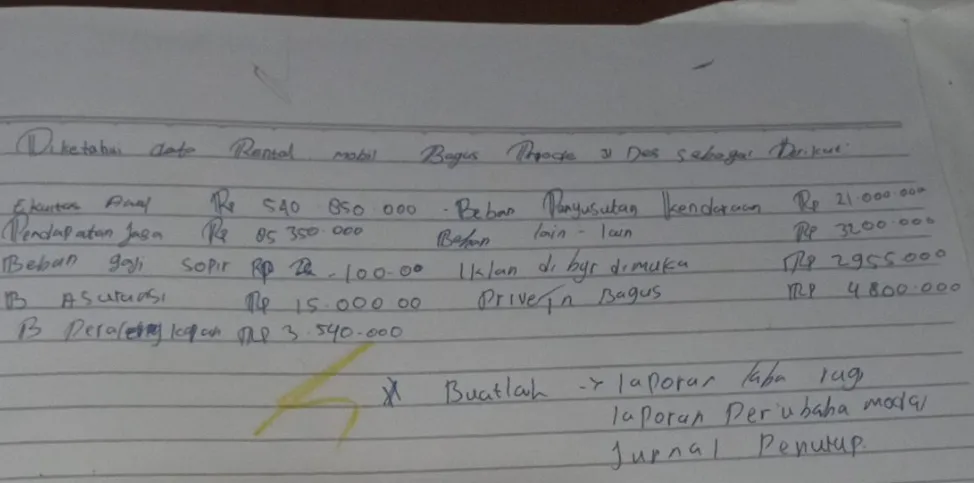 Diketahui data Rental mobil Bagus per 31 Des sebagai Berikut:
Ekuitas Awal Rp 540.850.000 - Beban Penyusutan kendaraan Rp 21.000.000
Pendapatan Jasa Rp 85.350.000 Beban lain-lain Rp 3200.000
Beban gaji sopir Rp .100.00 Iklan di byr dimuka Rp 2955000
B Asuransi Rp 15.000 00 Prive Tn Bagus Rp 4800.000
B Perlengkapan Rp 3.540.000
* Buatlah → laporan laba rugi
laporan Perubaha modal
Jurnal Penutup.